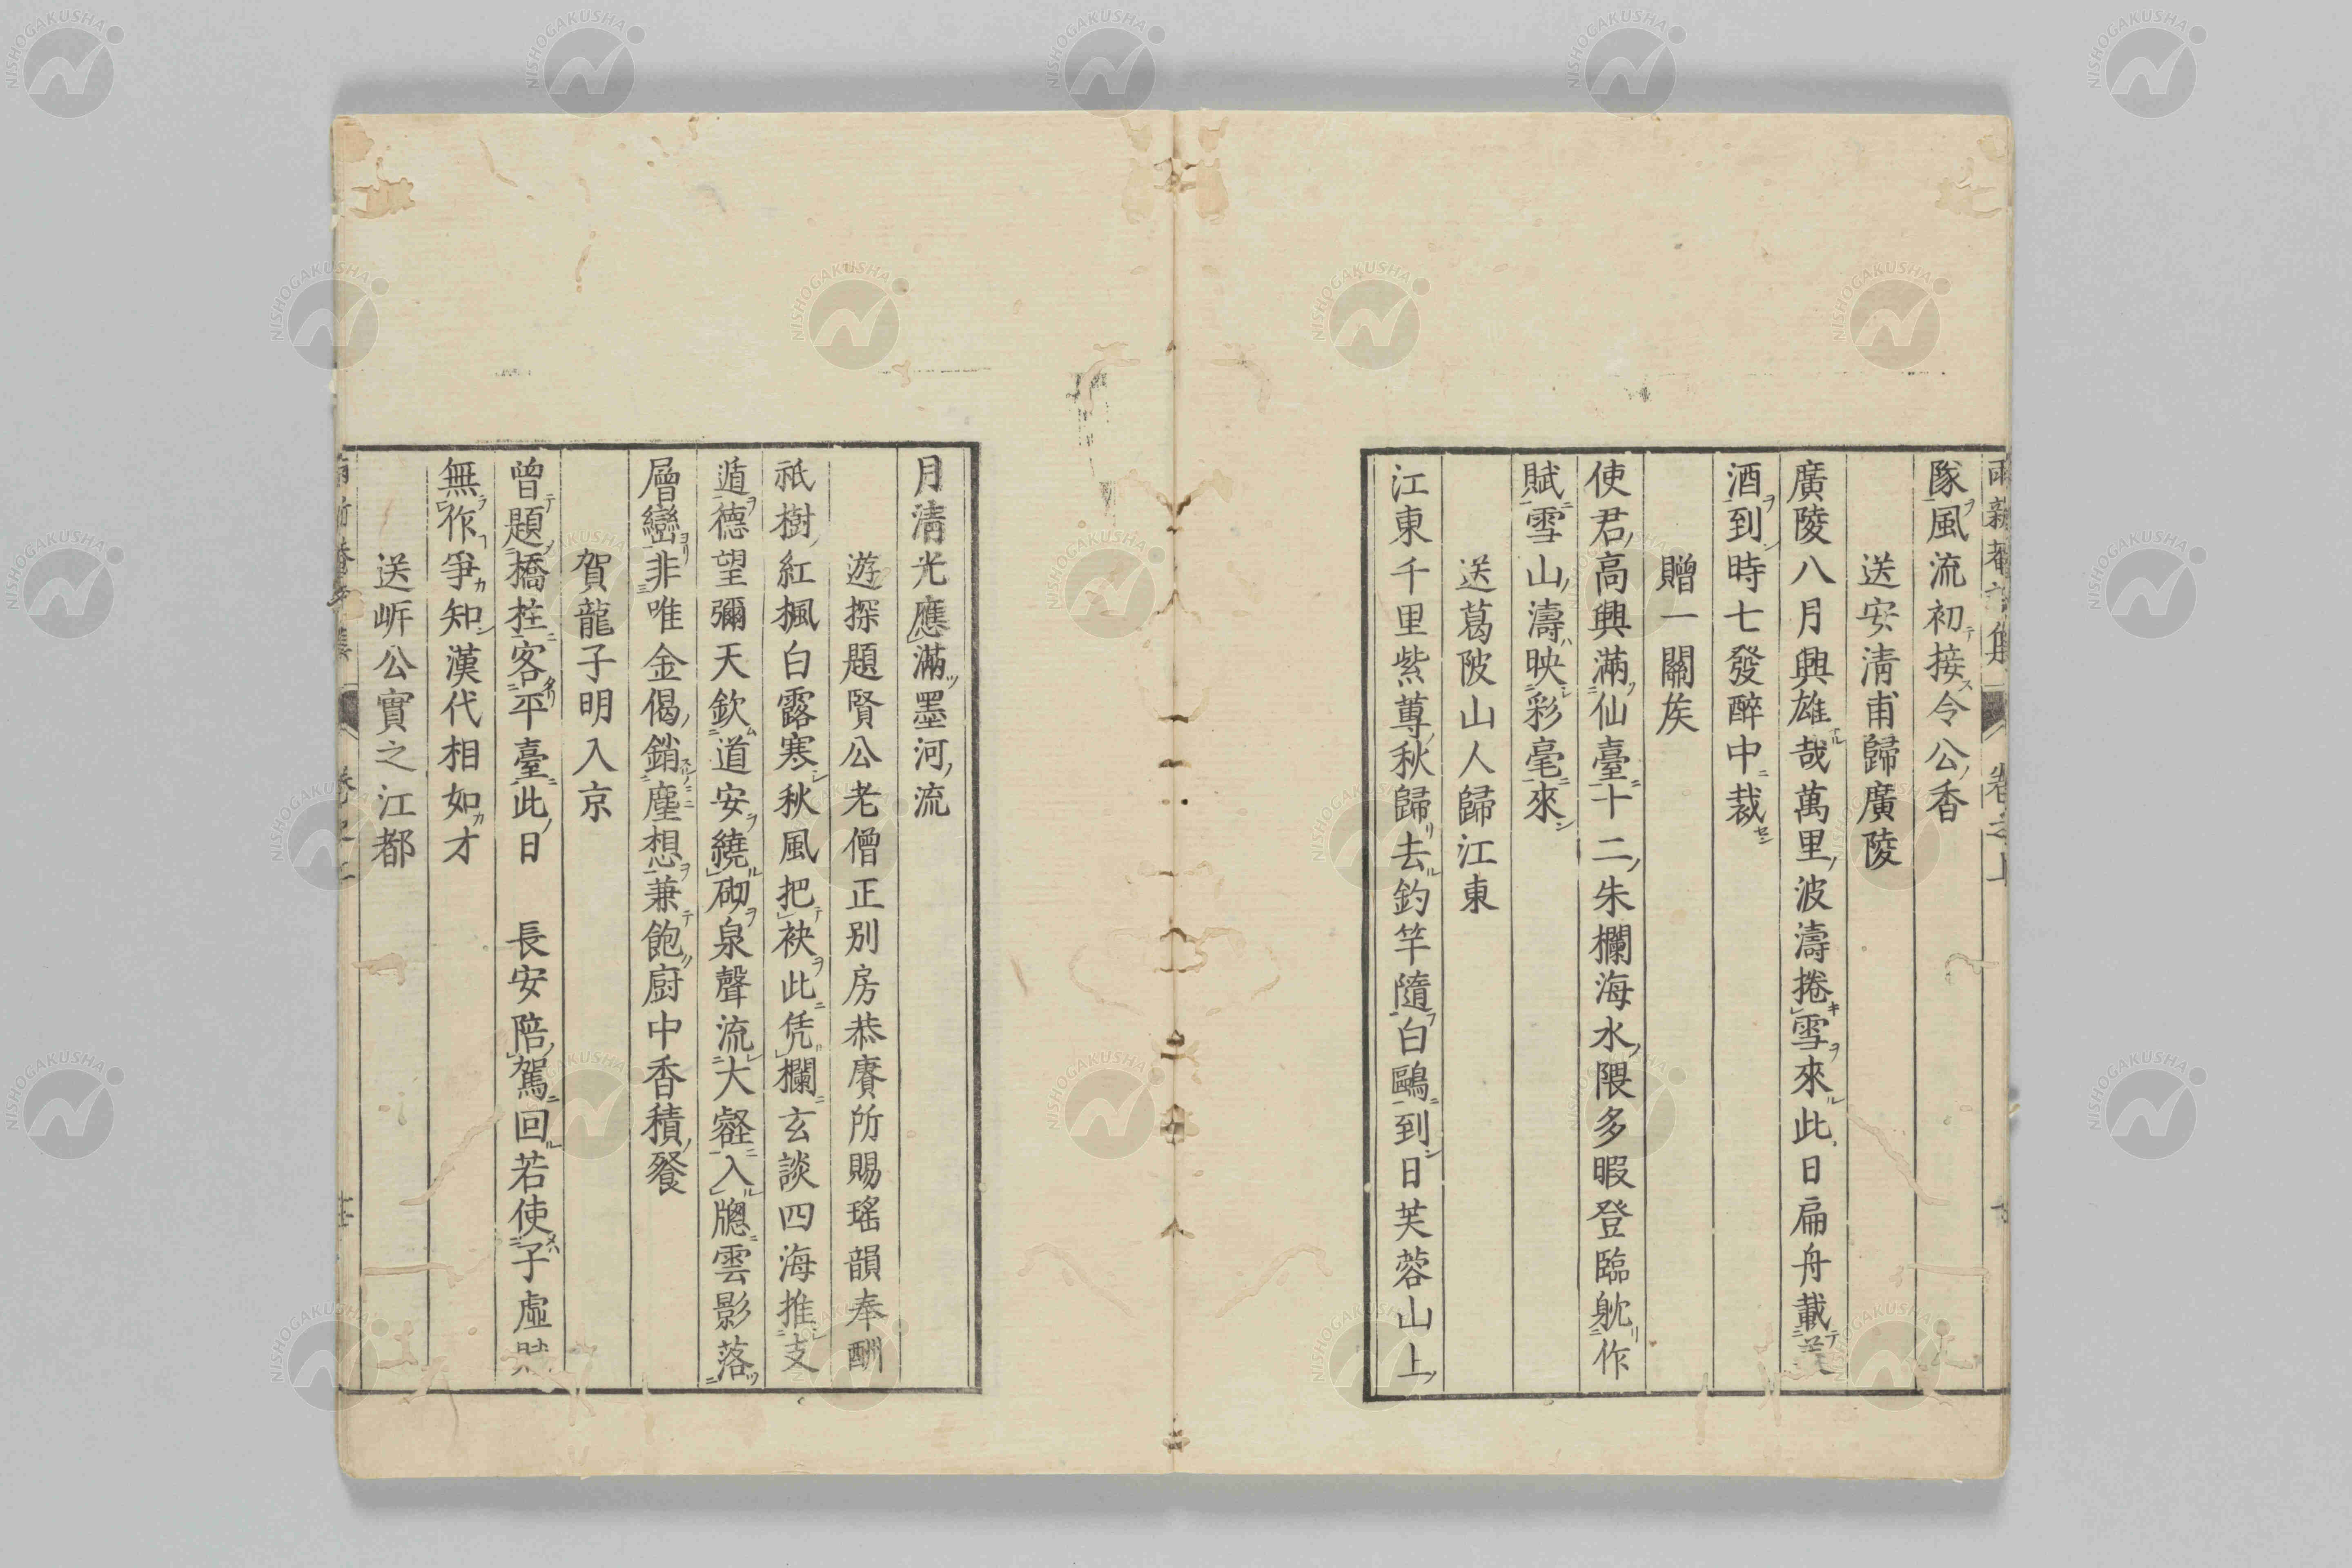 隊風流初接令公香
送安淸甫歸廣陵
廣陵八月興雄哉萬里波濤捲雪來此日扁舟載
酒到時七發醉中裁
贈一關矦
使君高興滿仙臺十二朱欄海水隈多暇登臨躭作
賦雪山濤映彩毫來
送葛陂山人歸江東
江東千里紫蓴秋歸去釣竿隨白鷗到日芙蓉山上
月淸光應滿墨河流
遊探題賢公老僧正別房恭賡所賜瑤韻奉酬
祇樹紅楓白露寒秋風把袂此凭欄玄談四海推支
遁德望彌天欽道安繞砌泉聲流大壑入牕雲影落
層巒非唯金偈銷塵想兼飽厨中香積餐
賀龍子明入京
曾題橋柱客平臺此日 長安陪駕回若使子虛賦
無作爭知漢代相如才
送岓公實之江都
卷之上
NISHOGAKUSHA